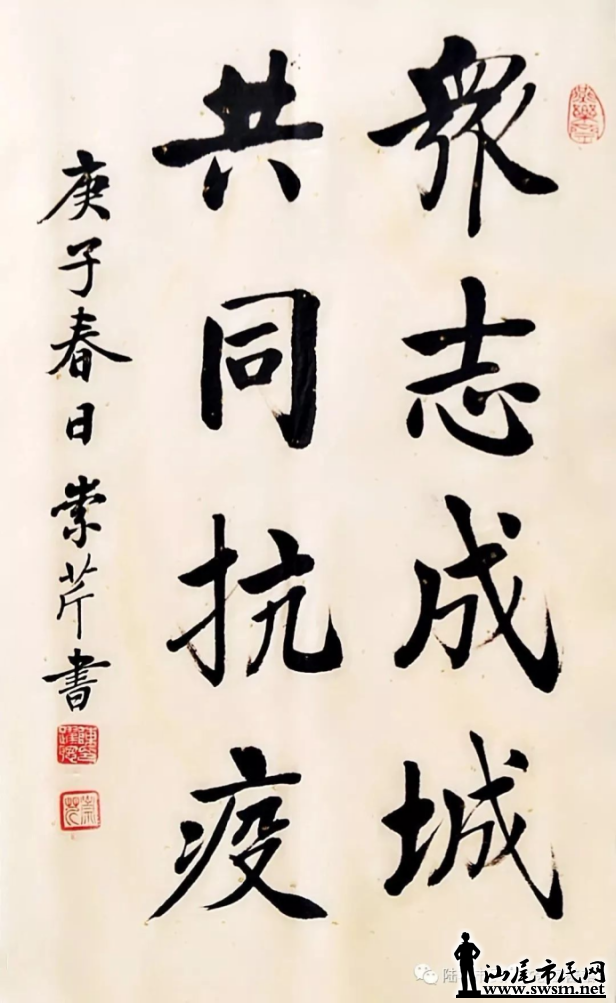 眾志成城
共同抗疫
庚子春日崇芹書
汕尾市民网
www.swsm.net